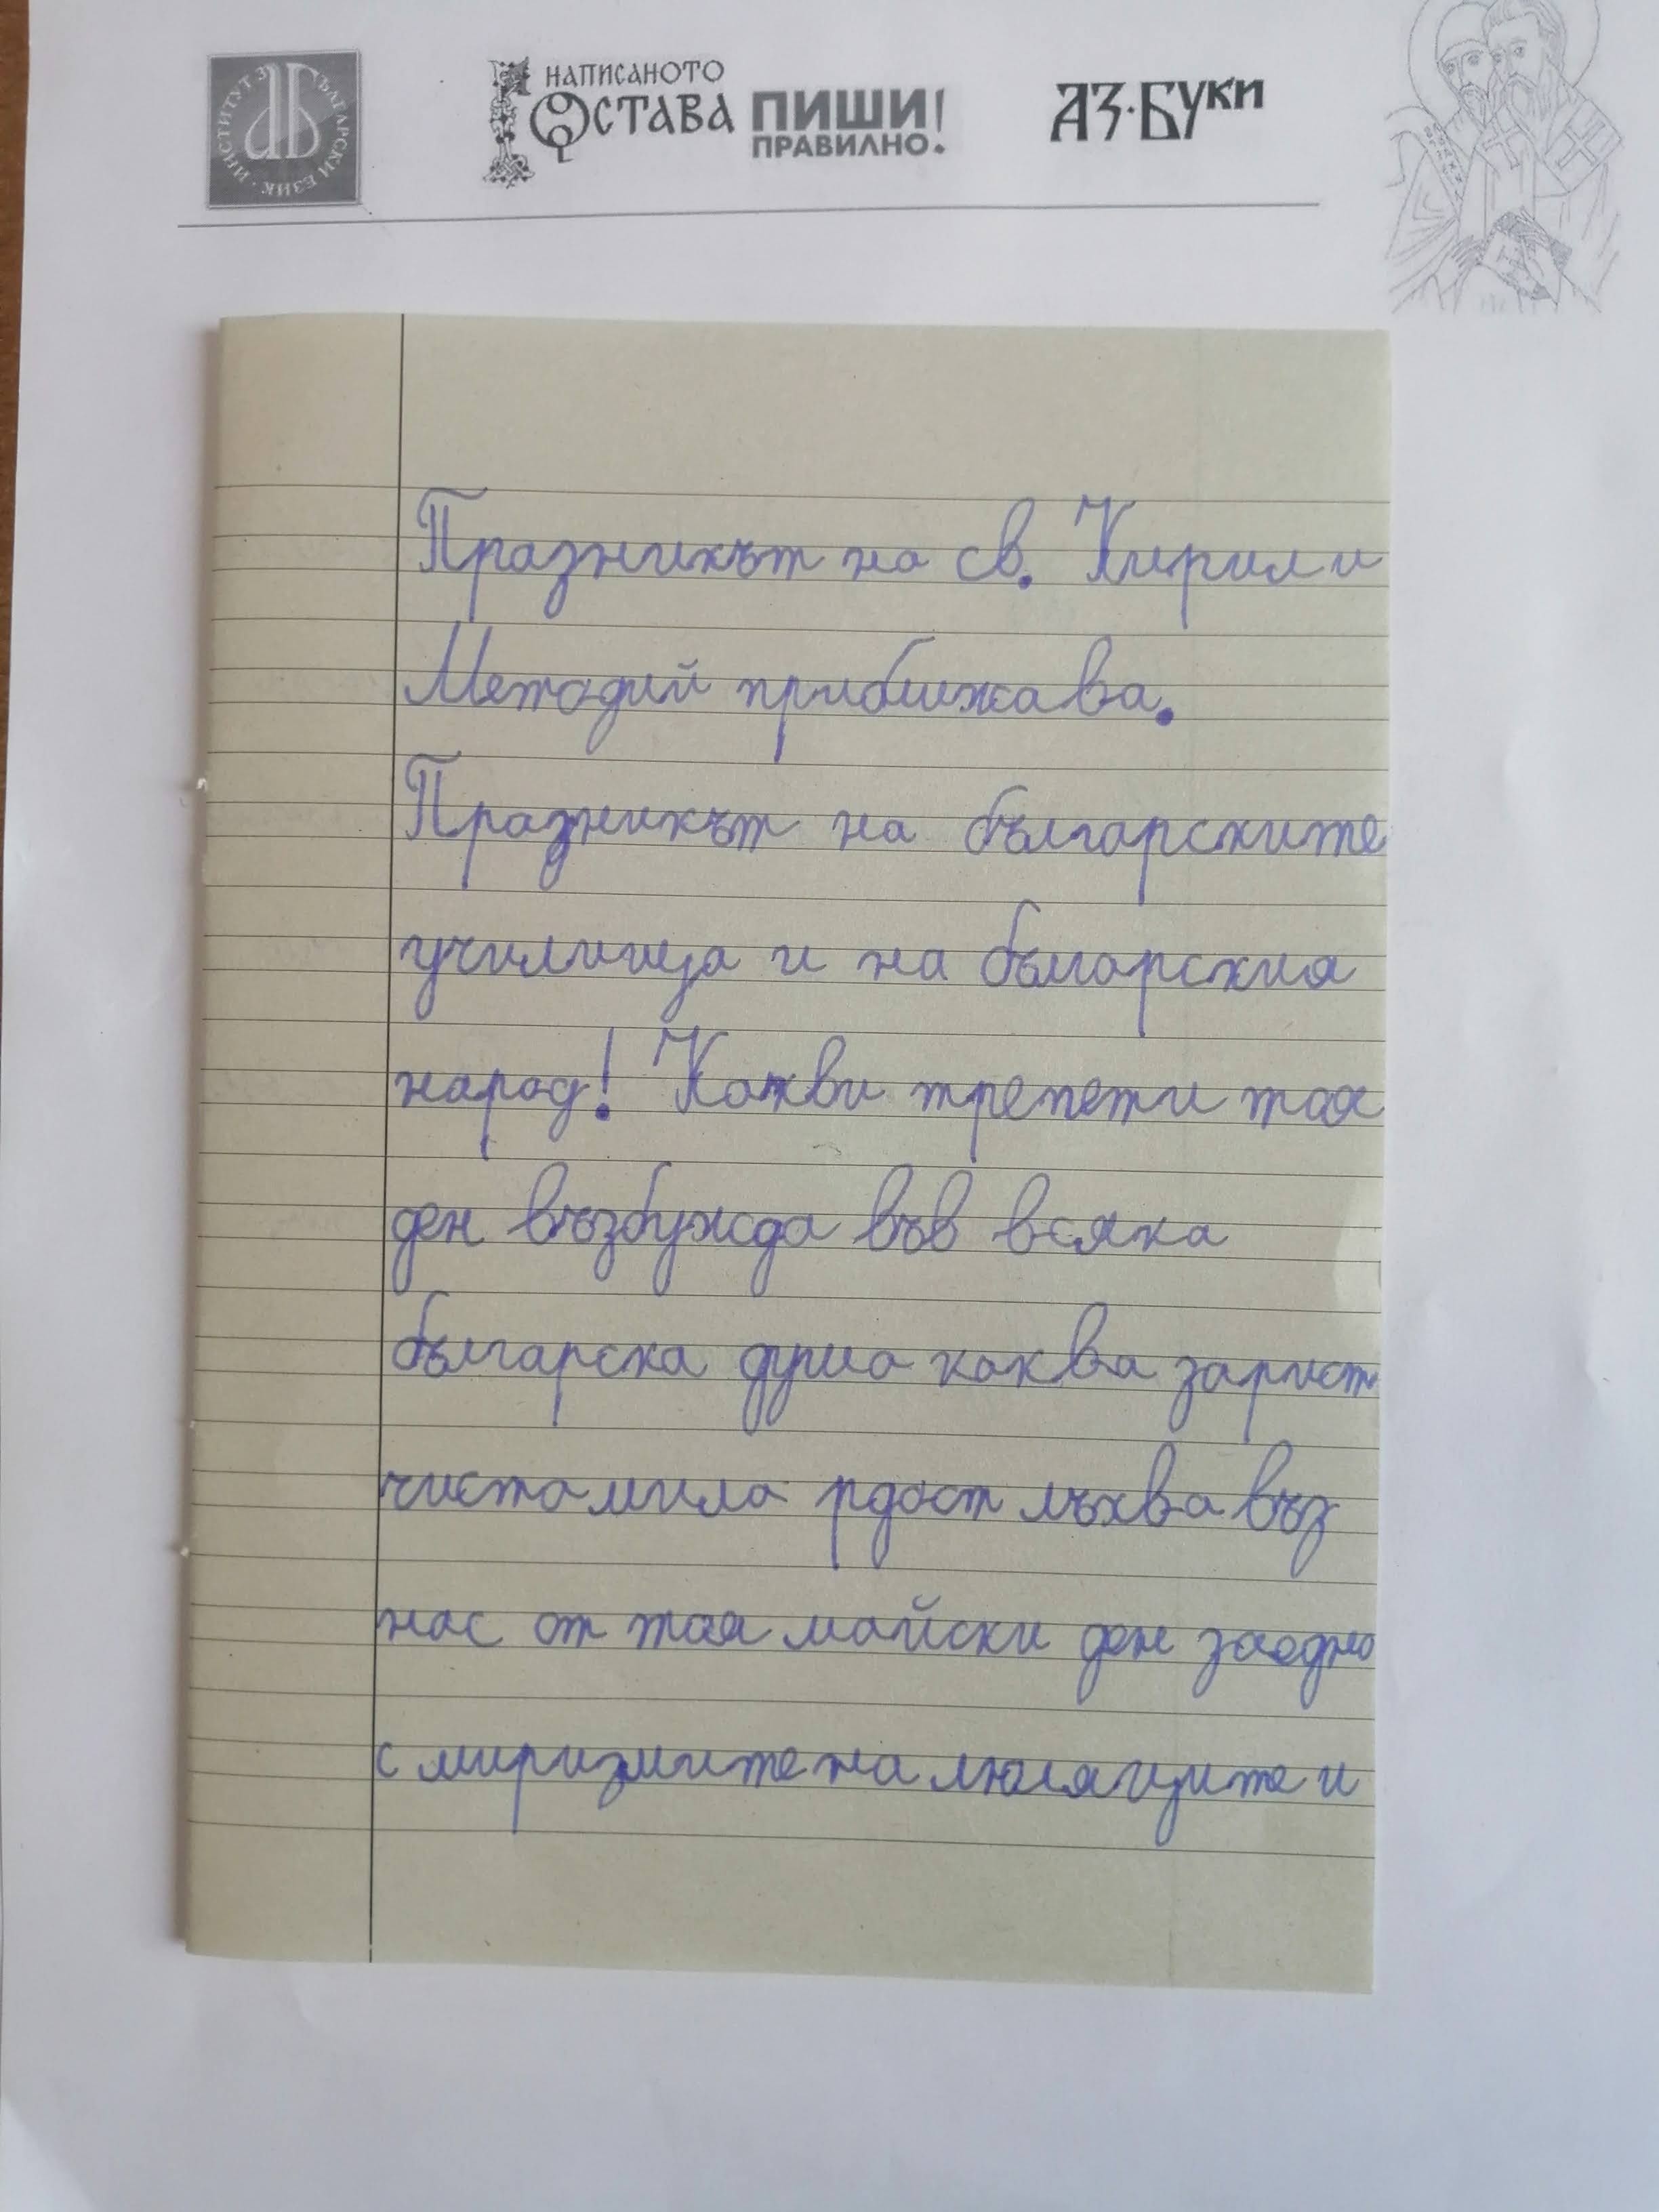 ИНСТИТУТ ЗА БЪЛГАРСКИ ЕЗИК
НАПИСАНОТО
ОСТАВА
ПИШИ!
ПРАВИЛНО.
АЗ·БУКИ
Празникът на св. Кирил и
Методий приближава.
Празникът на българските
училища и на българския
народ! Какви трепети тоя
ден възбужда във всяка
българска душа каква зарист
чиста мила рдост лъхва въз
нас от тоя майски ден заедно
с миризмите на люляците и